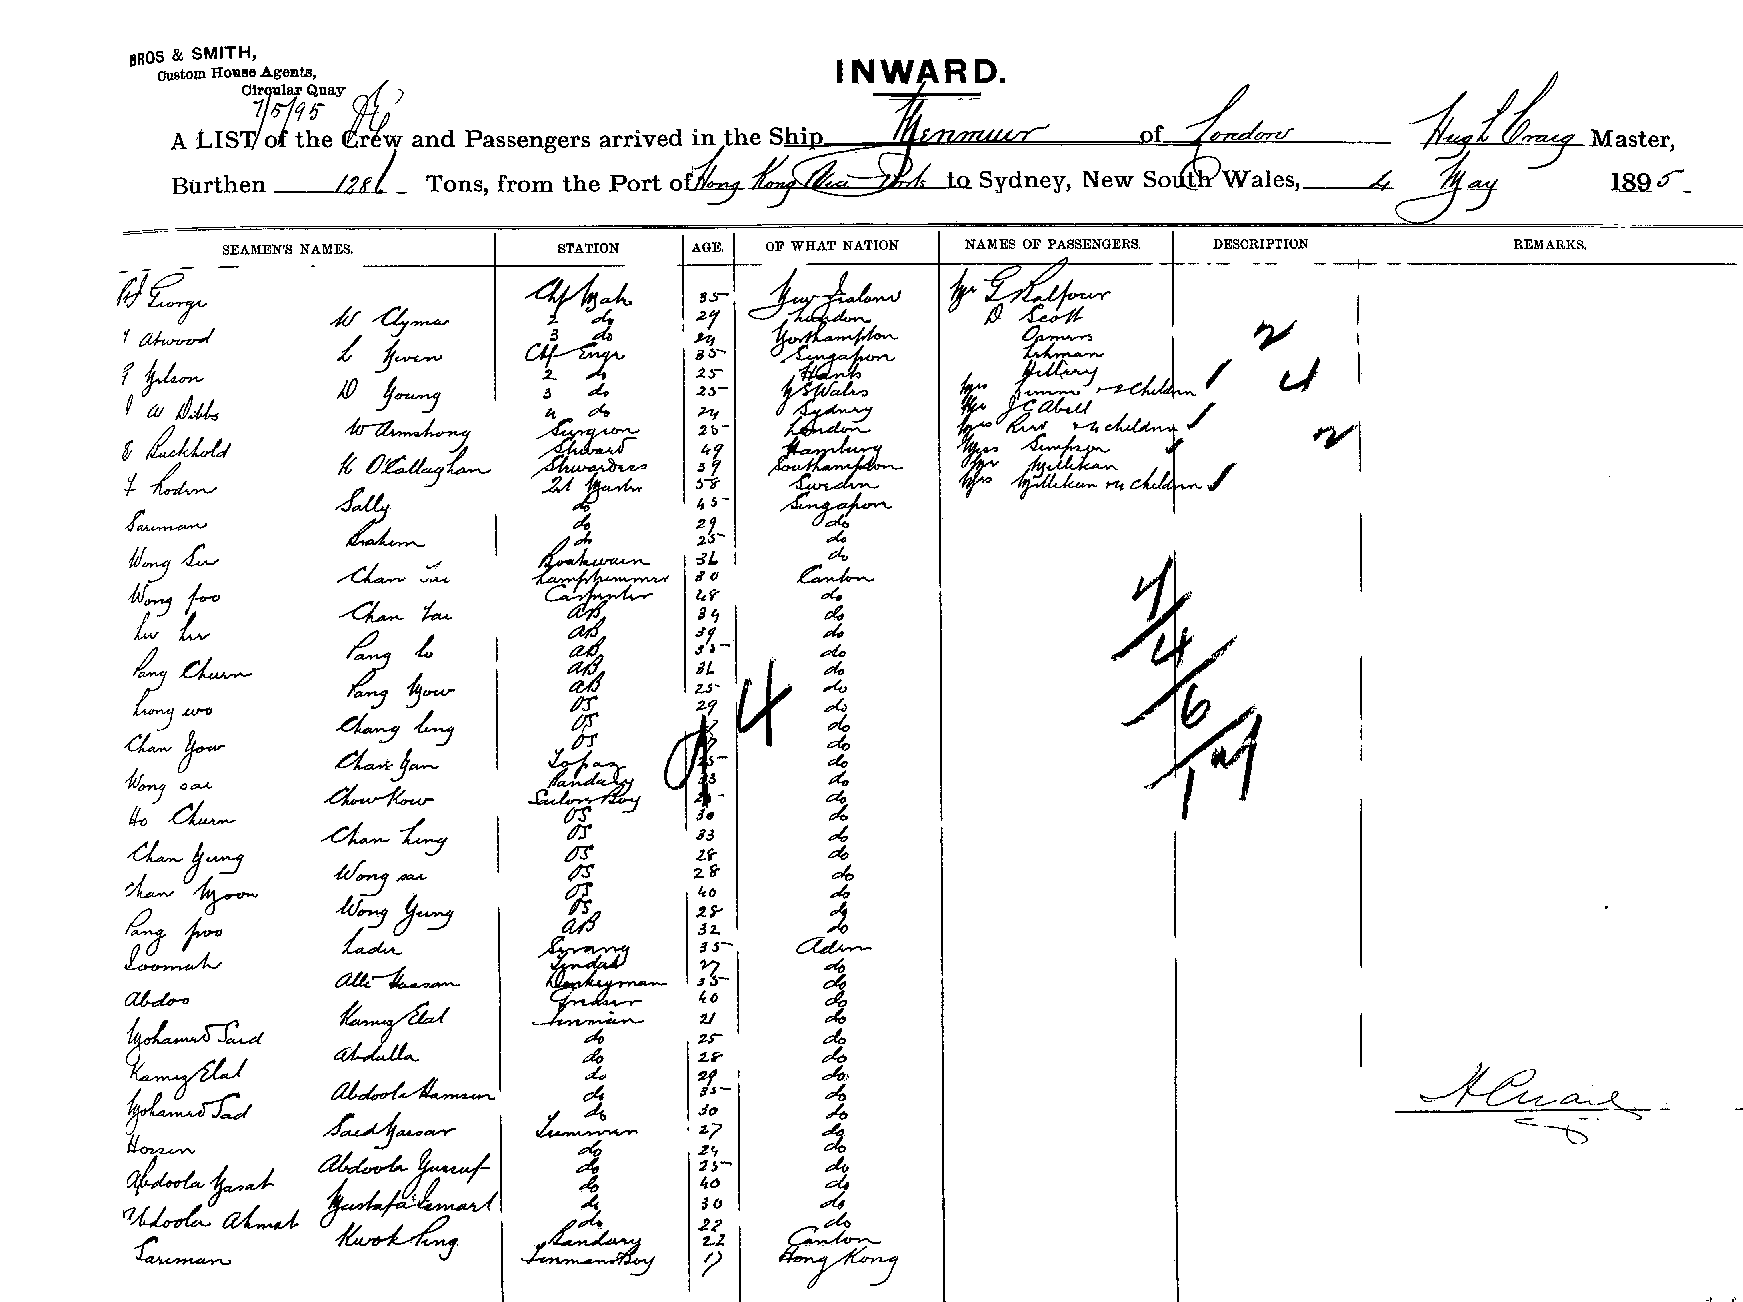 BROS & SMITH,
Custom House Agents,
Circular Quay
7/5/95
INWARD.
A LIST of the Crew and Passengers arrived in the Ship Menmuir of London Hugh Craig Master,
Burthen 1286 Tons, from the Port of Hong Kong to Sydney, New South Wales, 4 May 1895
SEAMEN'S NAMES. STATION AGE. OF WHAT NATION NAMES OF PASSENGERS. DESCRIPTION REMARKS.
George Chf Mate 35 New Zealand Mr G Balfour
W Clymer 2 do 29 London D Scott
Atwood 3 do 24 Northampton
L Given Chf Engr 35 Singapore Lehman
Gilson 2 do 25 Hants Hillery
D Young 3 do 25 N S Wales Mrs & 2 Children
W Dibbs 4 do 24 Sydney Mr J C Abell
W Armstrong Surgeon 25 London Mrs & 4 children
Buckhold Steward 49 Hamburg Simpson
K O'Callaghan Stewardess 39 Southampton Mr Millikan
F Rodin Qt Master 58 Sweden Mrs Millikan & 4 Children
Sally do 45 Singapore
Sariman do 29 do
Brahem do 25 do
Wong Su Boatswain 36 do
Chan Lamptrimmer 30 Canton
Wong foo Carpenter 48 do
Chan Tai AB 34 do
Lu Lu AB 39 do
Pang Lo AB 33 do
Pang Churn AB 36 do
Pang Yow AB 25 do
Leong wo OS 29 do
Chang Leng OS do
Chan Yow OS do
Chan Yan Topaz do
Wong sai Bandary do
Chow Kow Saloon Boy do
Ho Churn OS 30 do
Chan Ling OS 33 do
Chan Yung OS 28 do
Wong sai OS 28 do
Chan Moon OS 40 do
Wong Yung OS 28 do
Pang foo AB 32 do
Lader Serang 35 Aden
Soomah Tindal 27 do
Alli Hassan Donkeyman 35 do
Abdoo Greaser 40 do
Kamez Elal Fireman 21 do
Mohamed Said do 25 do
Abdulla do 28 do
Kamez Elal do 29 do
Abdoola Hamsun do 35 do
Mohamed Sad do 30 do
Saed Hassar Trimmer 27 do
Hossen do 24 do
Abdoola Yussuf do 25 do
Abdoola Yasat do 40 do
Mustafa Ismart do 30 do
Abdoola Ahmat do 22 do
Kwok Ping Bandary 22 Canton
Sariman Firemans Boy 17 Hong Kong